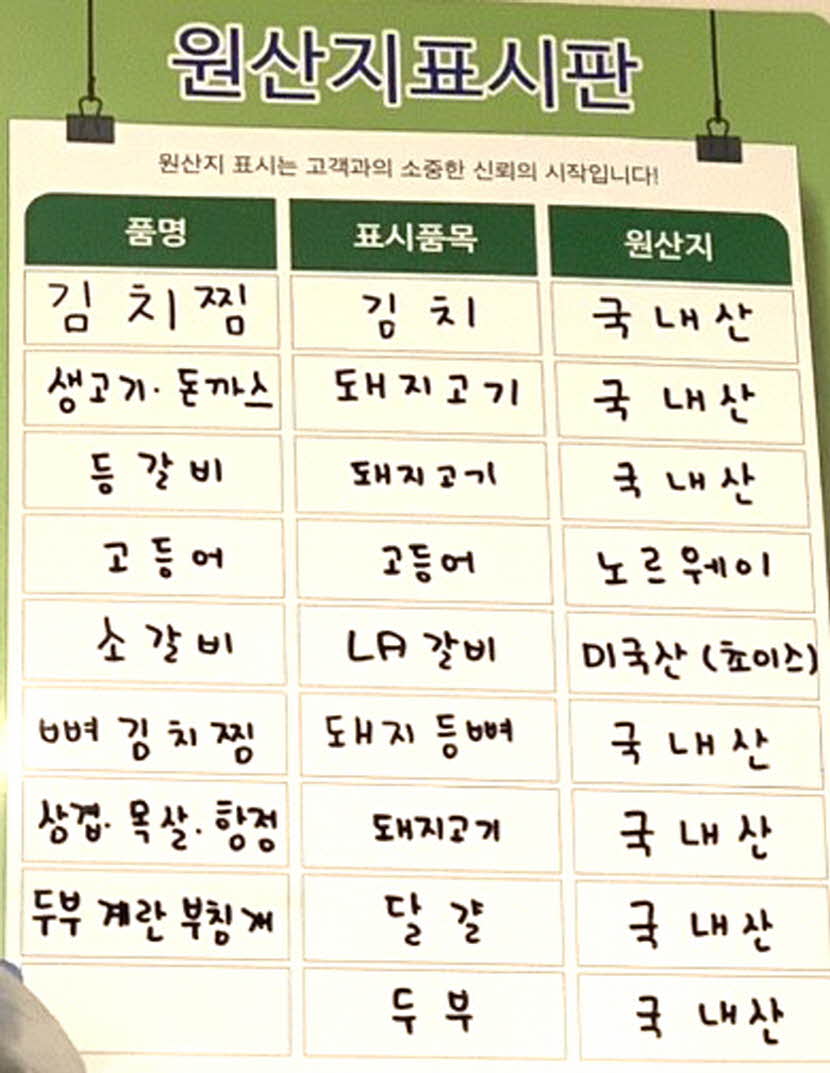 원산지표시판
원산지 표시는 고객과의 소중한 신뢰의 시작입니다!
품명 표시품목 원산지
김치찜 김치 국내산
생고기·돈까스 돼지고기 국내산
등갈비 돼지고기 국내산
고등어 고등어 노르웨이
소갈비 LA갈비 미국산(쵸이스)
뼈김치찜 돼지등뼈 국내산
삼겹·목살·항정 돼지고기 국내산
두부계란부침개 달걀 국내산
두부 국내산